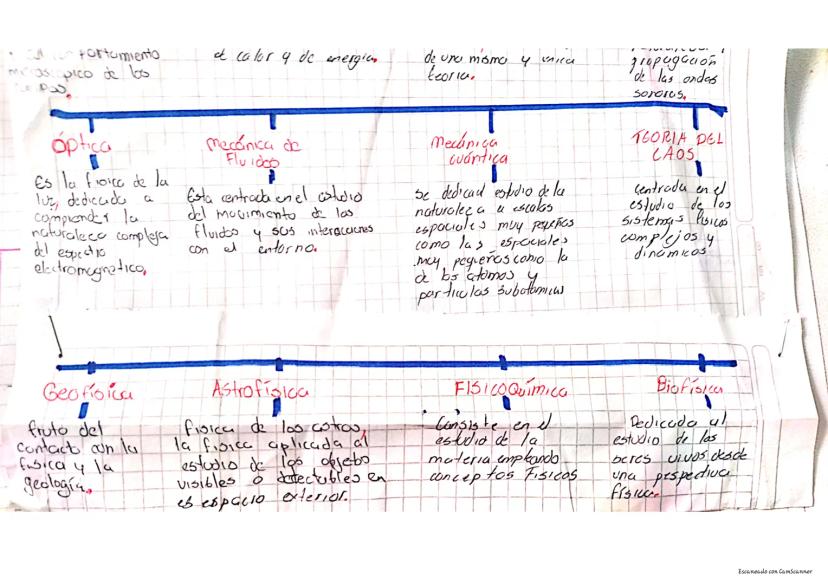 portamiento
de los
el calor y de energia.
de una misma y unica
teoria.
propagación
de las ondas
sonoras.
óptica
Es la fisica de la
luz, dedicada a
comprender la
naturaleza compleja
del espectro
electromagnetico.
mecánica de
Fluidos
Esta centrada en el estudio
del movimiento de los
fluidos y sus interacciones
con el entorno.
mecánica
cuántica
se dedica al estudio de la
naturaleza a escalas
espaciales muy pequeñas
como las espaciales
muy pequeñas como la
de los atomos y
particulas subatomicas
TEORIA DEL
CAOS
Centrada en el
estudio de los
sistemas fisicos
complejos y
dinámicos
Geofísica
fruto del
contacto con la
fisica y la
geología.
Astrofísica
fisica de los astros,
la fisica aplicada al
estudio de los objeto
visibles o detectables en
es espacio exterior.
FISICOQuímica
Consiste en el
estudio de la
materia empleando
conceptos Fisicos
Biofísica
Dedicada al
estudio de los
seres vivos desde
una pespectiva
física.
Escaneado con CamScanner